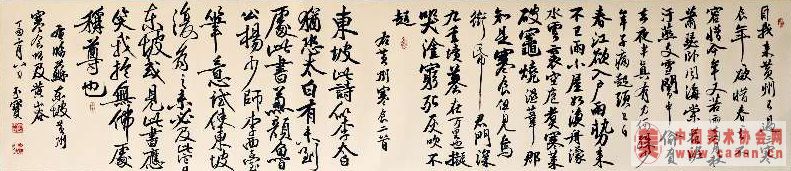 自我来黄州已過三寒
食年年欲惜春春去不
容惜今年又苦雨兩月秋
蕭瑟卧聞海棠花泥
汙燕支雪闇中偷負
去夜半真有力何殊少
年子病起頭已白
春江欲入户雨勢来
不已雨小屋如漁舟濛
水雲裏空庖煮寒菜
破竈燒濕葦那
知是寒食但見烏
銜帋君門深
九重墳墓在万里也擬
哭塗窮死灰吹不
起
右黄州寒食二首
東坡此詩似李太白
猶恐太白有未到
處此書兼顔魯
公楊少師李西臺
筆意試使東坡
復為之未必及此它日
東坡或見此書應
笑我於無佛處
稱尊也
右臨蘇東坡黄州
寒食帖及黄山谷
中国美术协会网